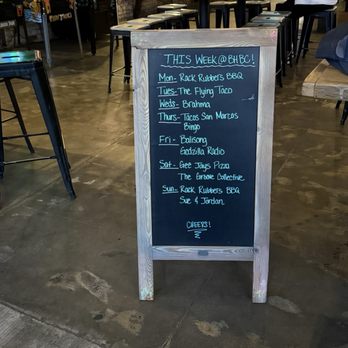 THIS WEEK @ BHBC!
Mon- Rack Rubber's BBQ
Tues- The Flying Taco
Weds- Brahma
Thurs- Tacos San Marcos
Bingo
Fri- Balisong
Godzilla Radio
Sat- Gee Jays Pizza
The Groove Collective
Sun- Rack Rubber's BBQ
Sue & Jordan
CHEERS!